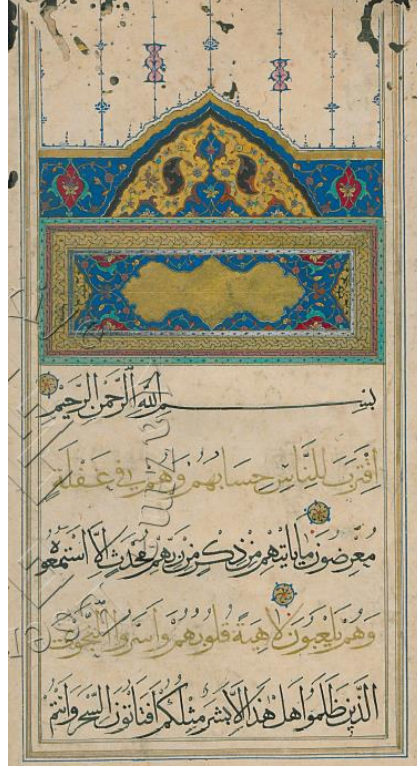 بِسْمِ اللهِ الرَّحْمٰنِ الرَّحِيْمِ
اِقْتَرَبَ لِلنَّاسِ حِسَابُهُمْ وَهُمْ فِي غَفْلَةٍ
مُعْرِضُونَ مَا يَأْتِيهِمْ مِنْ ذِكْرٍ مِنْ رَبِّهِمْ مُحْدَثٍ اِلَّا اسْتَمَعُوهُ
وَهُمْ يَلْعَبُونَ لَاهِيَةً قُلُوبُهُمْ وَاَسَرُّوا النَّجْوَى
الَّذِينَ ظَلَمُوا هَلْ هٰذَا اِلَّا بَشَرٌ مِثْلُكُمْ اَفَتَأْتُونَ السِّحْرَ وَاَنْتُمْ